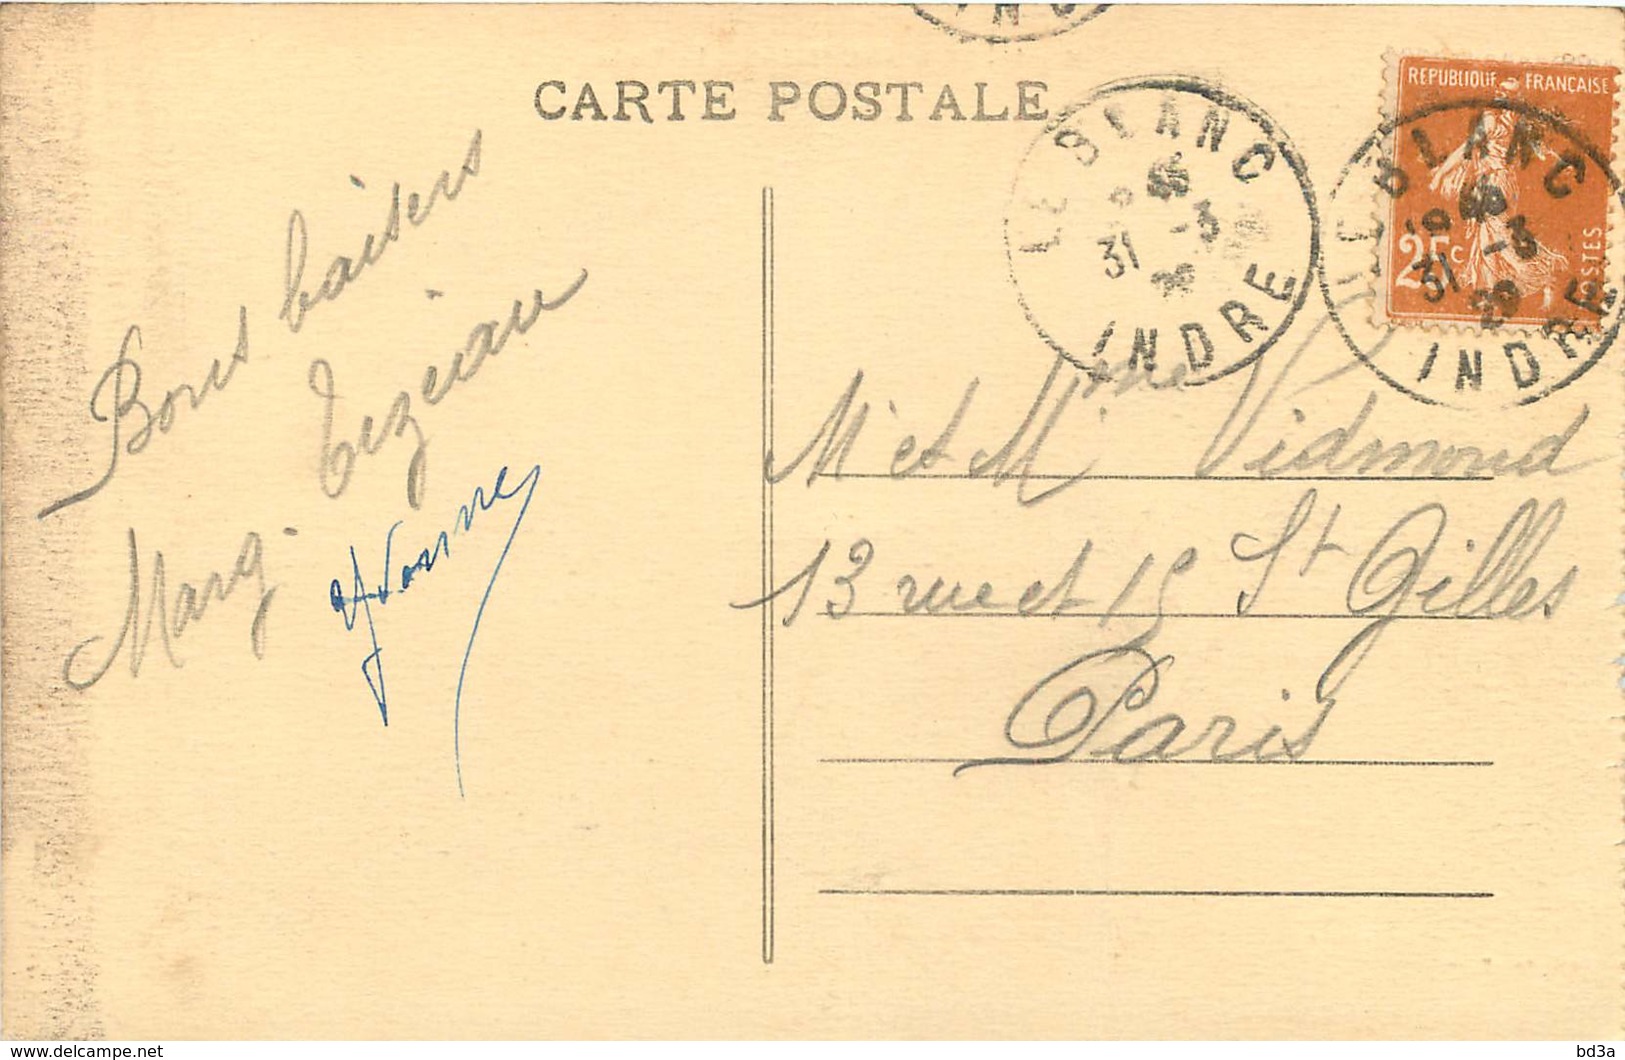 CARTE POSTALE
REPUBLIQUE FRANÇAISE
25c
POSTES
LE BLANC
31 -3
INDRE
LE BLANC
31 -3
INDRE
Bons baisers
Marg. Tezeau
Yvonne
Mr et Mme Vidmond
13 rue et 15 St Gilles
Paris
delcampe.net
bd3a